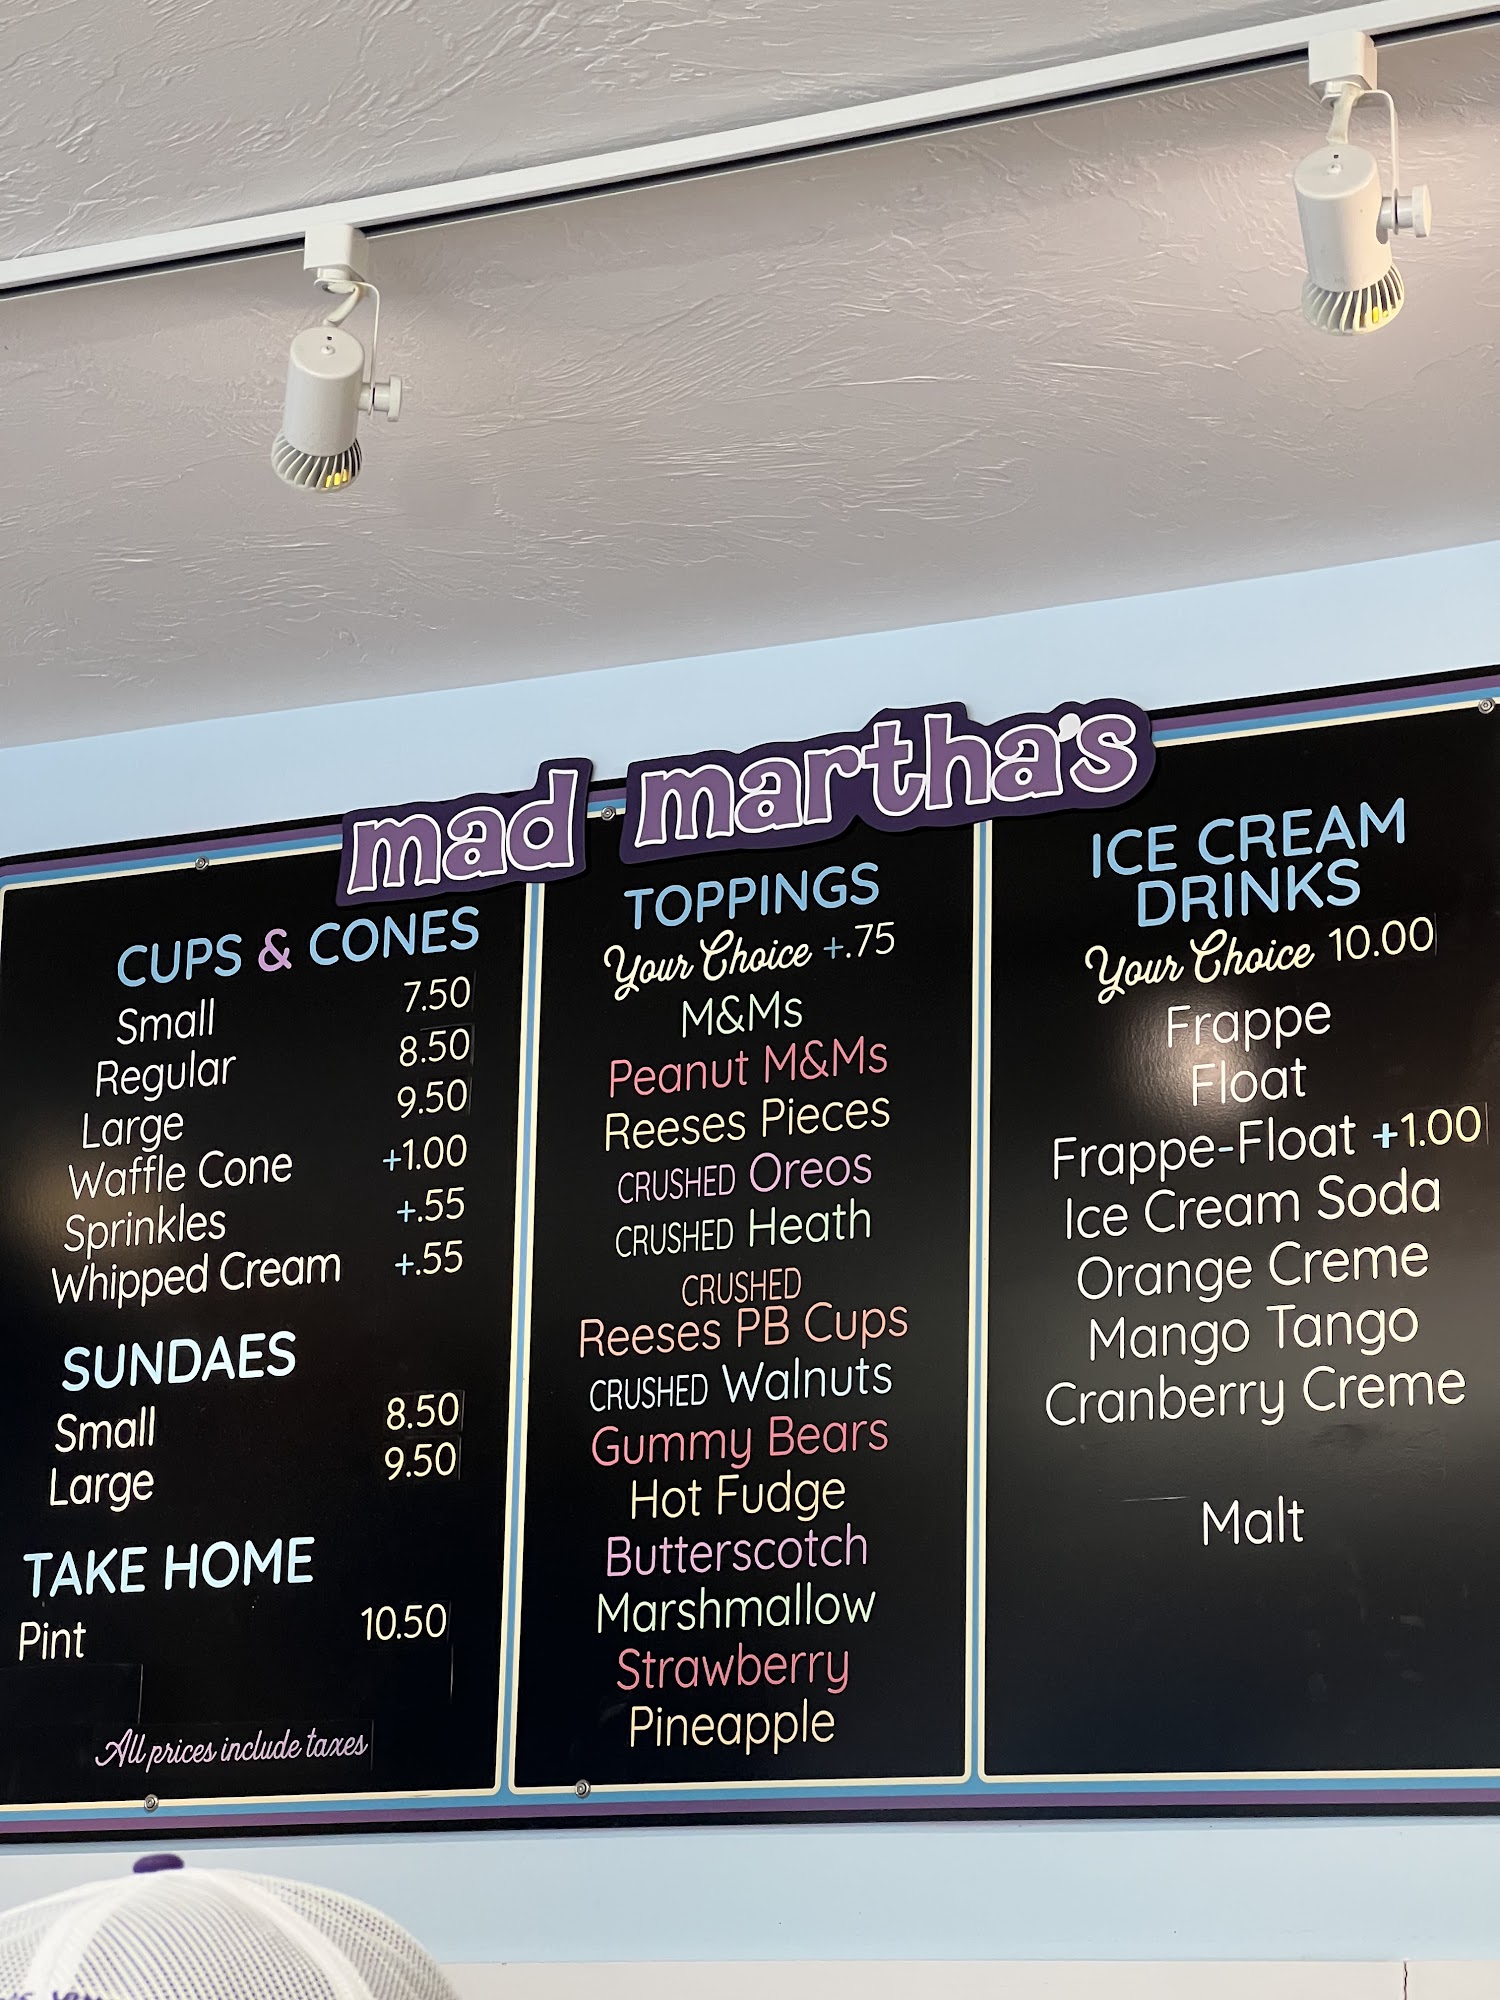 mad martha's
CUPS & CONES
Small 7.50
Regular 8.50
Large 9.50
Waffle Cone +1.00
Sprinkles +.55
Whipped Cream +.55
SUNDAES
Small 8.50
Large 9.50
TAKE HOME
Pint 10.50
All prices include taxes
TOPPINGS
Your Choice +.75
M&Ms
Peanut M&Ms
Reeses Pieces
CRUSHED Oreos
CRUSHED Heath
CRUSHED
Reeses PB Cups
CRUSHED Walnuts
Gummy Bears
Hot Fudge
Butterscotch
Marshmallow
Strawberry
Pineapple
ICE CREAM
DRINKS
Your Choice 10.00
Frappe
Float
Frappe-Float +1.00
Ice Cream Soda
Orange Creme
Mango Tango
Cranberry Creme
Malt